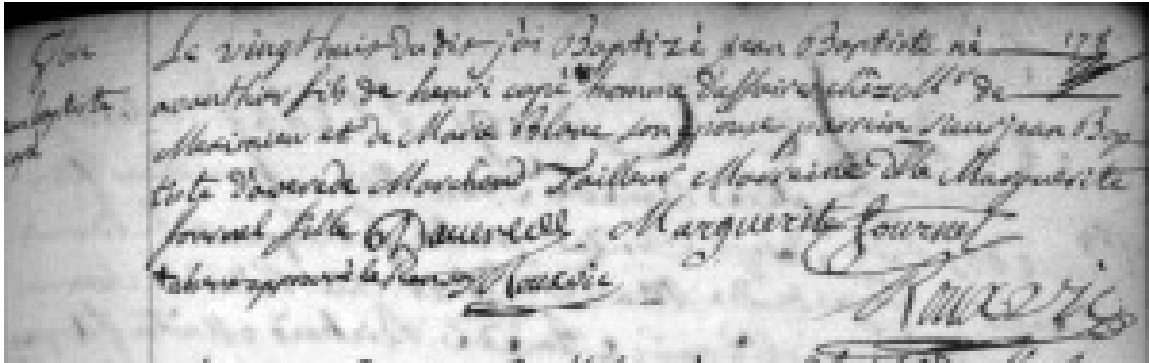 Jean
Baptiste
Le vingt huit du dit j'ai Baptizé jean Baptiste né
avanthier fils de henri capé homme d'affaire chéz Mr de
Meximieu et de Marie Blanc son epouse parrein sieur jean Bap
tiste d'averede Marchand Tailleur Marreine Dlle Marguerite
fournel fille Daverede Marguerite fournel
approuvé le Rouverie
Rouverie